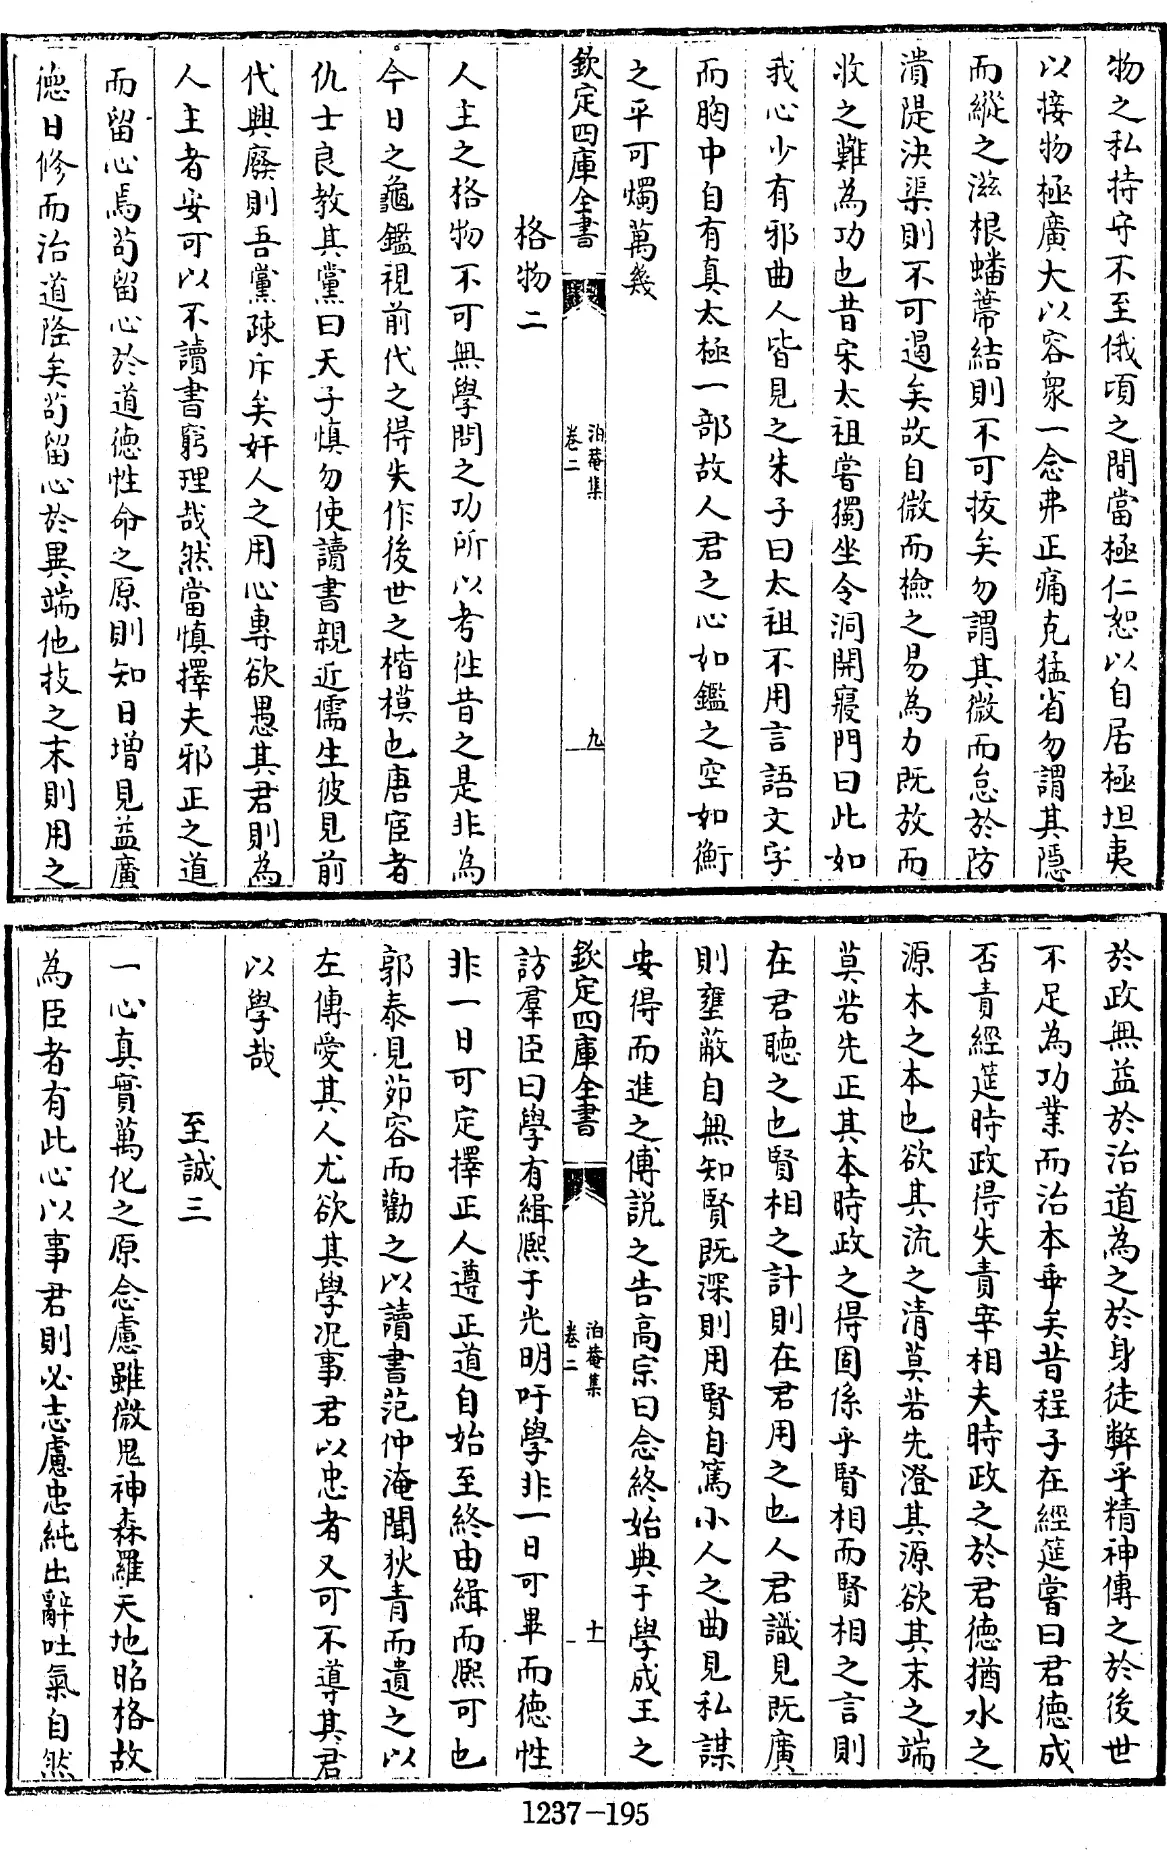 物之私持守不至俄頃之間當極仁恕以自居極坦夷
以接物極廣大以容衆一念弗正痛克猛省勿謂其隱
而縱之滋根蟠蔕結則不可拔矣勿謂其微而怠於防
潰隄決渠則不可遏矣故自微而檢之易為力既放而
收之難為功也昔宋太祖嘗獨坐令洞開寢門曰此如
我心少有邪曲人皆見之朱子曰太祖不用言語文字
而胸中自有真太極一部故人君之心如鑑之空如衡
之平可燭萬幾
欽定四庫全書
泊菴集
卷二
九
格物二
人主之格物不可無學問之功所以考徃昔之是非為
今日之龜鑑視前代之得失作後世之楷模也唐宦者
仇士良教其黨曰天子慎勿使讀書親近儒生彼見前
代興廢則吾黨疎斥矣奸人之用心專欲愚其君則為
人主者安可以不讀書窮理哉然當慎擇夫邪正之道
而留心焉苟留心於道德性命之原則知日增見益廣
德日修而治道隆矣苟留心於異端他技之末則用之
於政無益於治道為之於身徒弊乎精神傳之於後世
不足為功業而治本乖矣昔程子在經筵嘗曰君德成
否責經筵時政得失責宰相夫時政之於君德猶水之
源木之本也欲其流之清莫若先澄其源欲其末之端
莫若先正其本時政之得固係乎賢相而賢相之言則
在君聽之也賢相之計則在君用之也人君識見既廣
則壅蔽自無知賢既深則用賢自篤小人之曲見私謀
安得而進之傅説之告高宗曰念終始典于學成王之
欽定四庫全書
泊菴集
卷二
十
訪羣臣曰學有緝熙于光明吁學非一日可畢而德性
非一日可定擇正人遵正道自始至終由緝而熙可也
郭泰見茆容而勸之以讀書范仲淹聞狄青而遺之以
左傳愛其人尤欲其學况事君以忠者又可不導其君
以學哉
至誠三
一心真實萬化之原念慮雖微鬼神森羅天地昭格故
為臣者有此心以事君則必志慮忠純出辭吐氣自然
1237-195